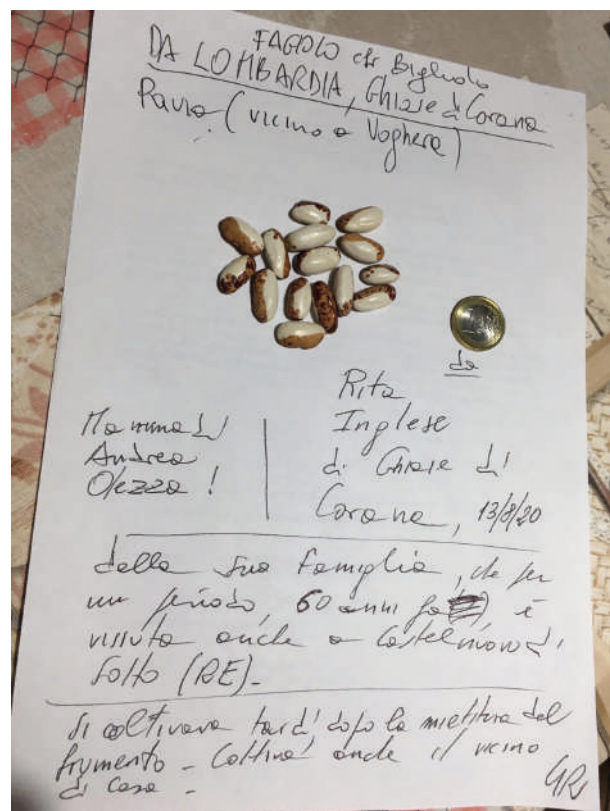 FAGIOLO di Bigliolo
DA LOMBARDIA, Ghiaie di Corana
Pavia (vicino a Voghera)
da
Rita
Inglese
di Ghiaie di
Corana, 13/8/20
Mamma di
Andrea
Olezza!
della sua famiglia, che per
un periodo, 60 anni fa è
vissuta anche a Castelnovo di
Sotto (RE)-
Si coltivava tardi, dopo la mietitura del
frumento - Coltiva anche il vicino
di casa -